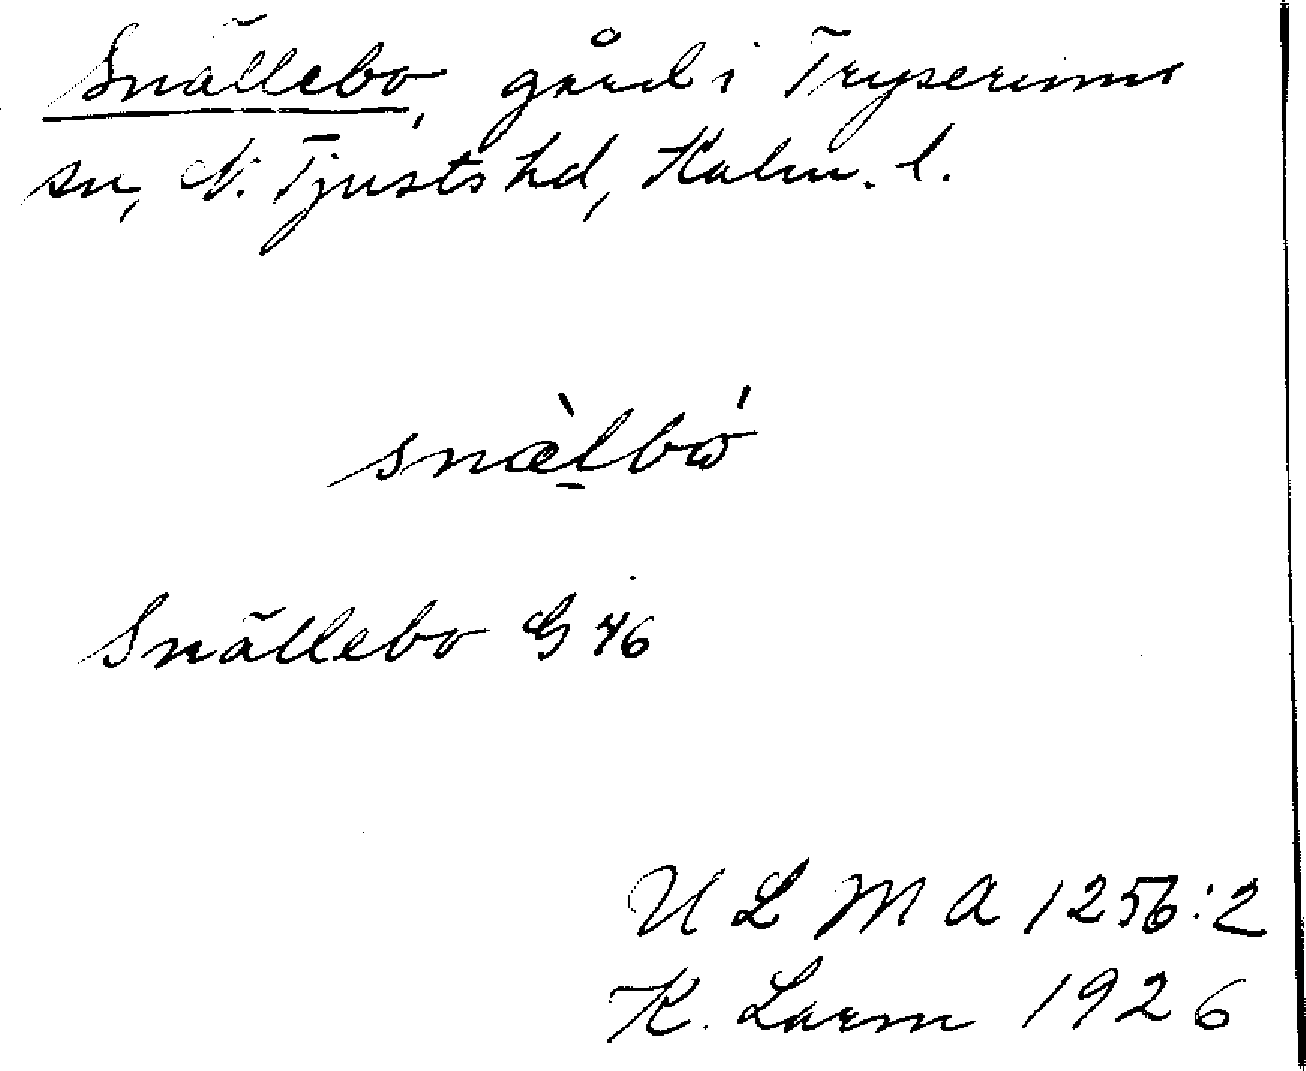 Snällebo, gård i Tryserums
sn, N. Tjusts hd, Kalm. l.
snæ̀lbó
Snällebo G 46
ULMA 1256:2
K. Larm 1926